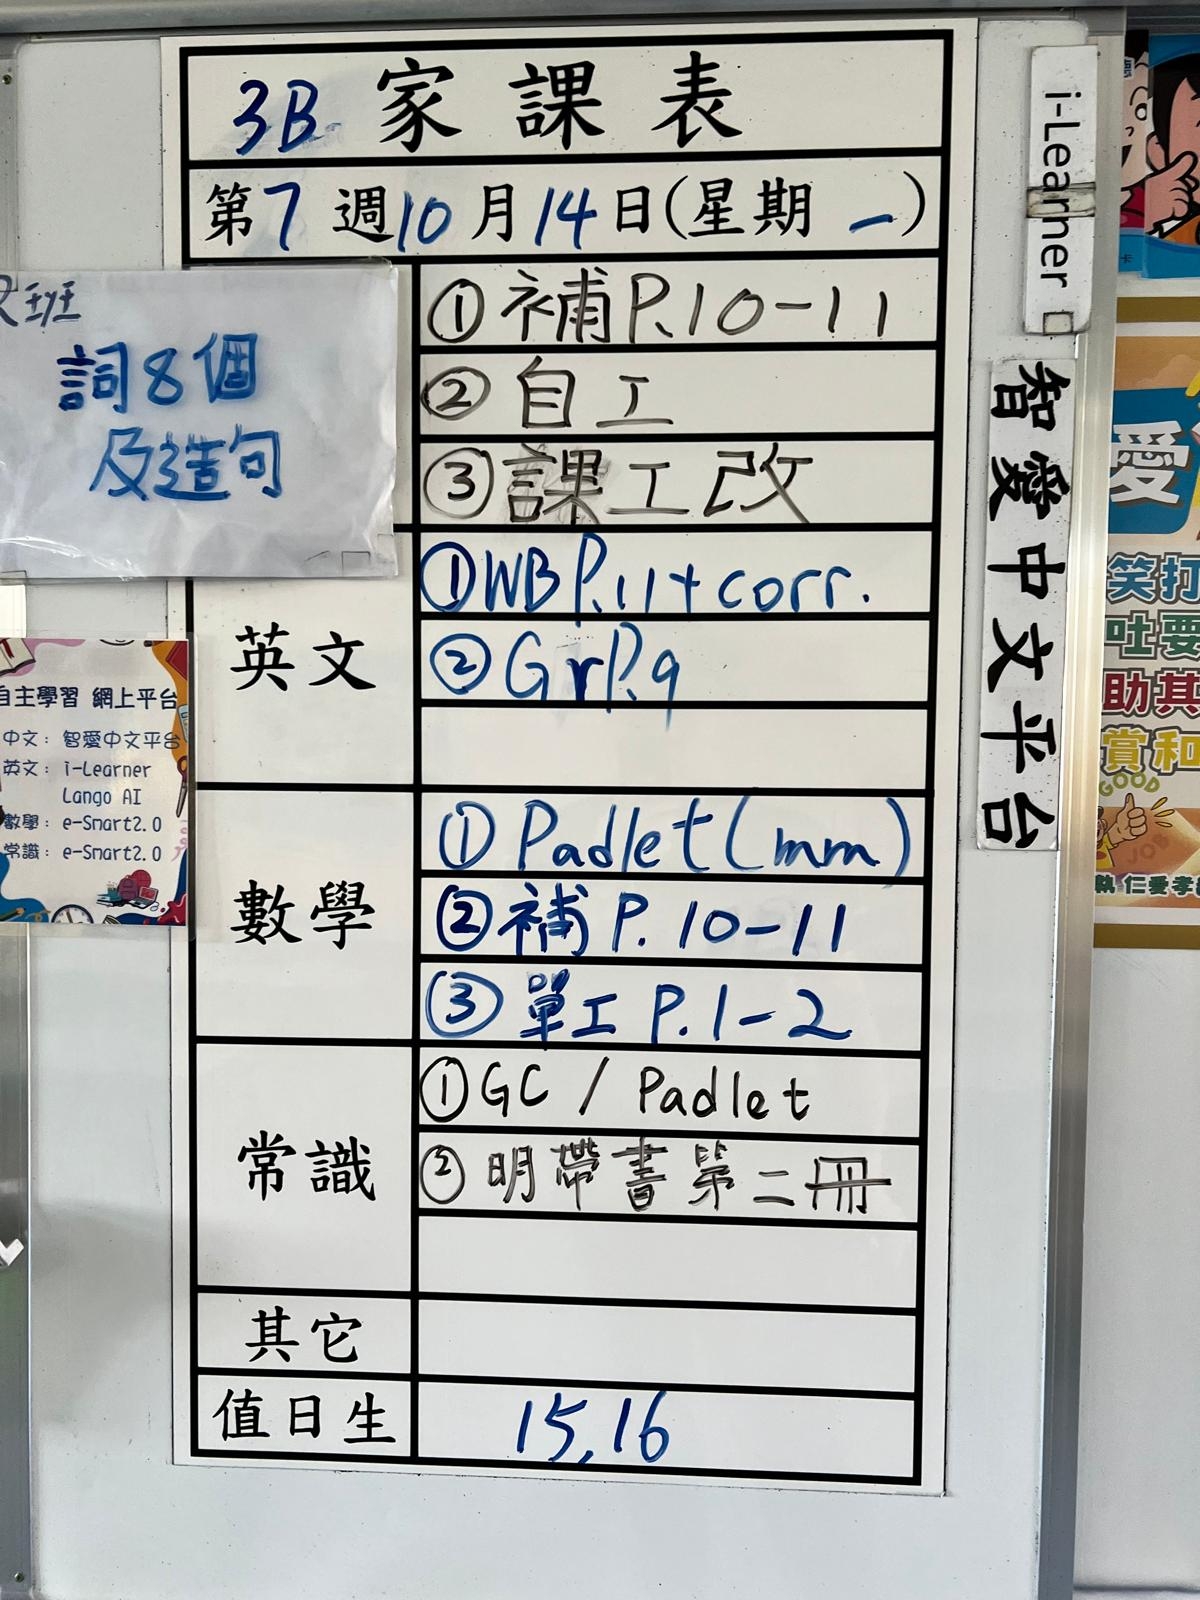 3B 家課表
第7週10月14日(星期一)
班
詞8個
及造句
①補P.10-11
②自工
③課工改
英文
①WB P.11+corr.
②Gr P.9
數學
①Padlet(mm)
②補P.10-11
③單工P.1-2
常識
①GC / Padlet
②明帶書第二冊
其它
值日生
15,16
自主學習 網上平台
中文：智愛中文平台
英文：i-Learner
Lango AI
數學：e-Smart2.0
常識：e-Smart2.0
i-Learner
智愛中文平台
愛
笑打
吐要
助其
賞和
GOOD
JOB
仁愛孝
卡